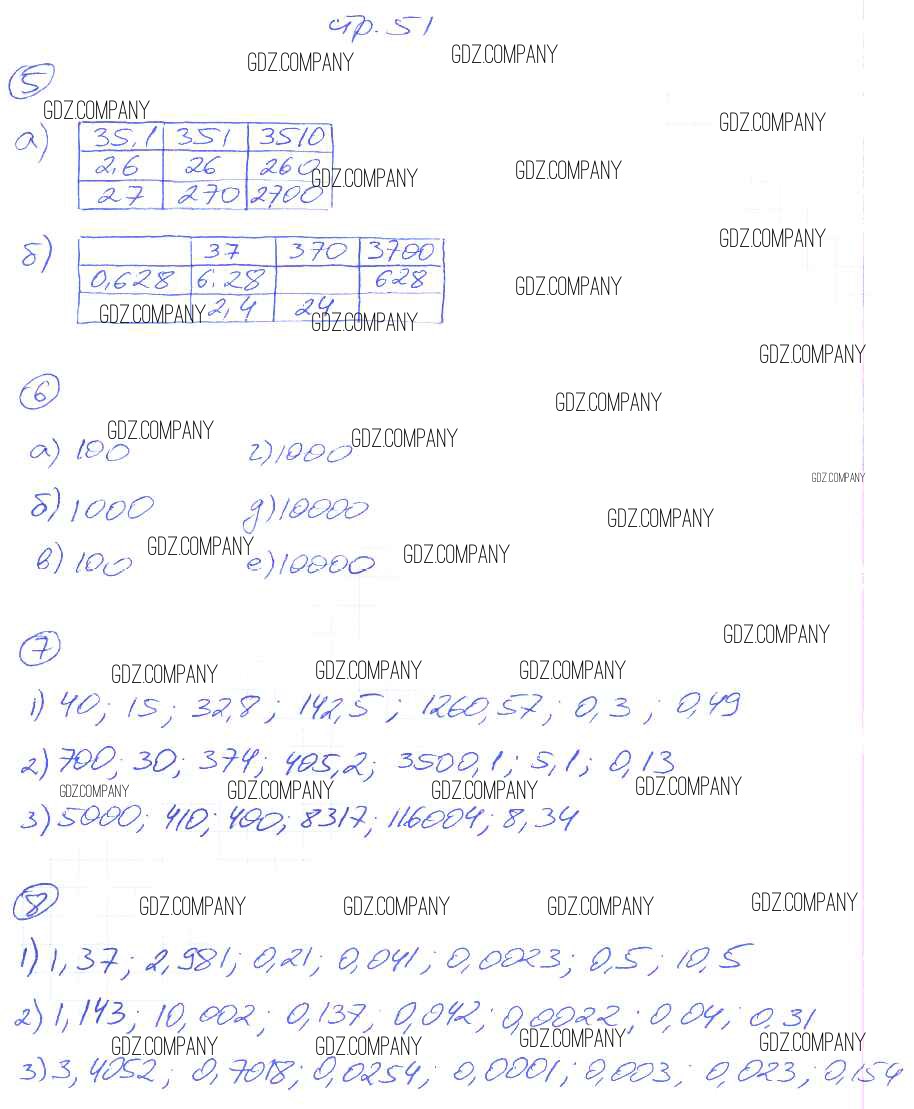 стр. 51
GDZ.COMPANY GDZ.COMPANY
5
GDZ.COMPANY GDZ.COMPANY
а) 35,1 351 3510
2,6 26 260 GDZ.COMPANY GDZ.COMPANY
27 270 2700
б) 37 370 3700 GDZ.COMPANY
0,628 6,28 628 GDZ.COMPANY
GDZ.COMPANY 2,4 24 GDZ.COMPANY
GDZ.COMPANY
6
GDZ.COMPANY
GDZ.COMPANY GDZ.COMPANY
а) 100 г) 1000
GDZ.COMPANY
б) 1000 д) 10000 GDZ.COMPANY
GDZ.COMPANY GDZ.COMPANY
в) 100 е) 10000
7 GDZ.COMPANY
GDZ.COMPANY GDZ.COMPANY GDZ.COMPANY
1) 40; 15; 32,8; 142,5; 1260,57; 0,3; 0,49
2) 700; 30; 374; 405,2; 3500,1; 5,1; 0,13
GDZ.COMPANY GDZ.COMPANY GDZ.COMPANY GDZ.COMPANY
3) 5000; 410; 400; 8317; 116004; 8,34
8 GDZ.COMPANY GDZ.COMPANY GDZ.COMPANY GDZ.COMPANY
1) 1,37; 2,981; 0,21; 0,041; 0,0023; 0,5; 10,5
2) 1,143; 10,002; 0,137; 0,042; 0,0022; 0,04; 0,31
GDZ.COMPANY GDZ.COMPANY GDZ.COMPANY GDZ.COMPANY
3) 3,4052; 0,7018; 0,0254; 0,0001; 0,003; 0,023; 0,154